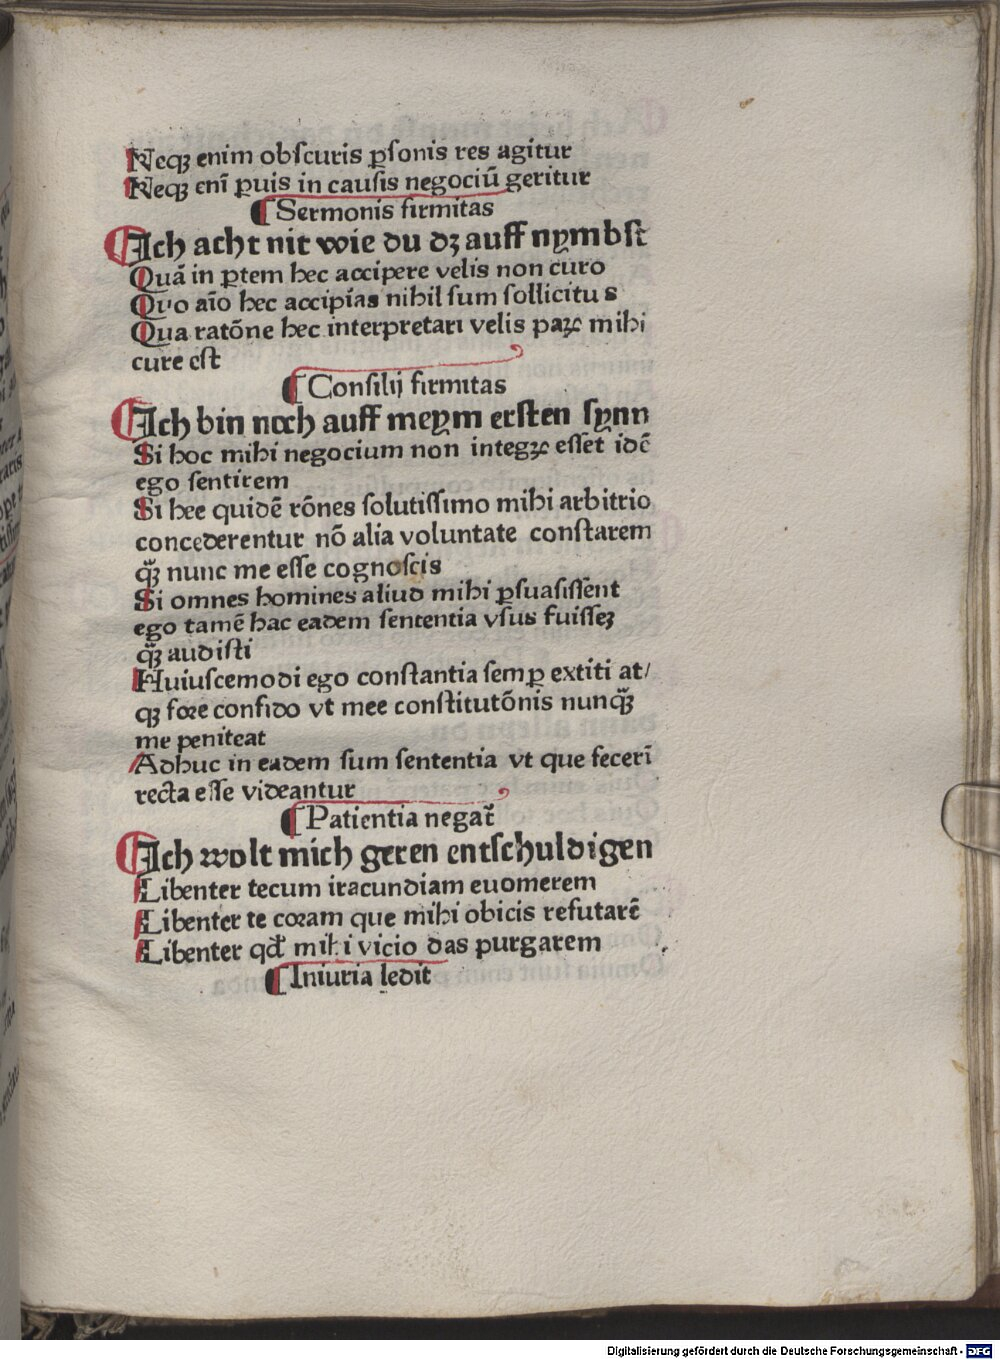 Neqꝫ enim obſcuris ꝑſonis res agitur
Neqꝫ enī ꝑuis in cauſis negociū geritur
¶ Sermonis firmitas
¶ Ich acht nit wie du dꝫ auff nymbſt
Quā in ꝑtem hec accipere velis non curo
Quo aīo hec accipias nihil ſum ſollicitus
Qua ratōne hec interpretari velis paꝝ mihi
cure eſt
¶ Conſilij firmitas
¶ Ich bin noch auff meym erſten ſynn
Si hoc mihi negocium non integꝝ eſſet idē
ego ſentirem
Si hee quidē rōnes ſolutiſſimo mihi arbitrio
concederentur nō alia voluntate conſtarem
qꝫ̄ nunc me eſſe cognoſcis
Si omnes homines aliud mihi ꝑſuaſiſſent
ego tamē hac eadem ſententia vſus fuiſſeꝫ
qꝫ̄ audiſti
Huiuſcemodi ego conſtantia ſemꝑ extiti at/
qꝫ foꝛe confido vt mee conſtitutōnis nunqꝫ̄
me peniteat
Adhuc in eadem ſum ſententia vt que fecerī
recta eſſe videantur
¶ Patientia negat᷑
¶ Ich wolt mich geren entſchuldigen
Libenter tecum iracundiam euomerem
Libenter te coꝛam que mihi obicis refutarē
Libenter qd̄ mihi vicio das purgarem
¶ Iniuria ledit
Digitalisierung gefördert durch die Deutsche Forschungsgemeinschaft - DFG